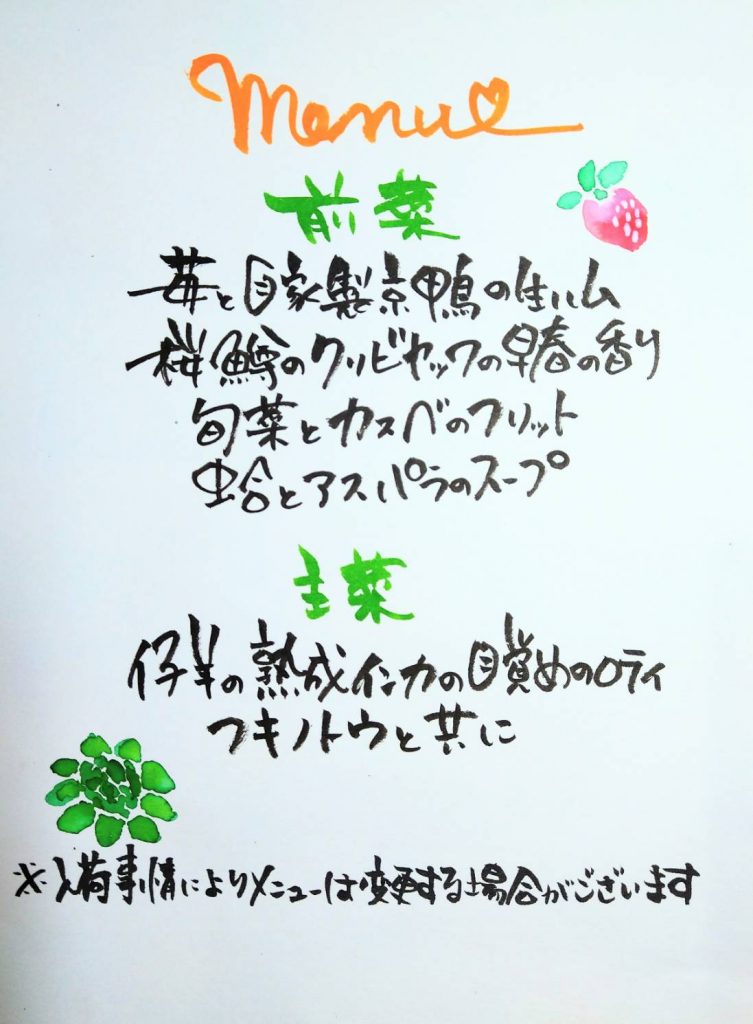 Menu
前菜
苺と自家製京鴨の生ハム
桜鱒のクリビヤックの早春の香り
旬菜とカスベのフリット
蛤とアスパラのスープ
主菜
仔羊の熟成インカの目覚めのロティ
フキノトウと共に
※入荷事情によりメニューは変更する場合がございます